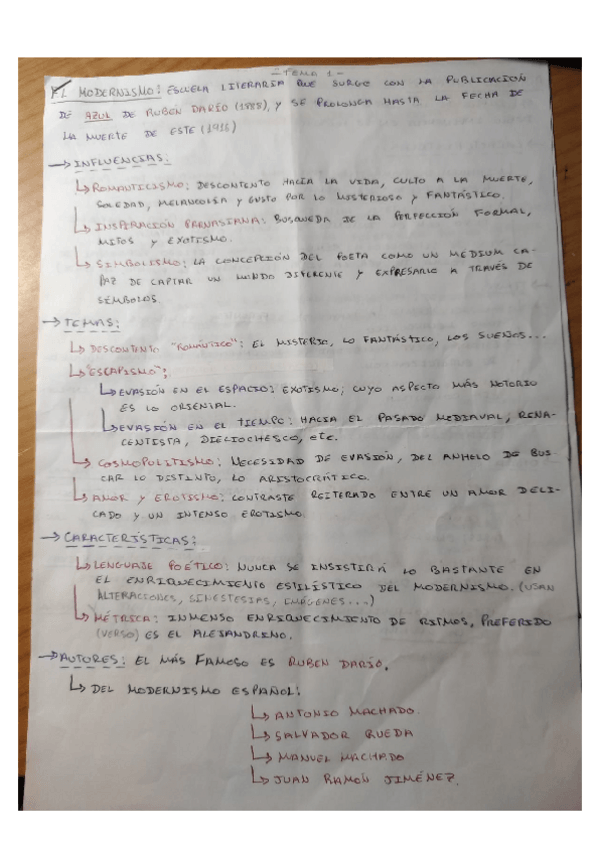 - TEMA 1 -
EL MODERNISMO: ESCUELA LITERARIA QUE SURGE CON LA PUBLICACIÓN
DE AZUL DE RUBEN DARÍO (1888), Y SE PROLONGA HASTA LA FECHA DE
LA MUERTE DE ESTE (1916)
→ INFLUENCIAS:
↳ ROMANTICISMO: DESCONTENTO HACIA LA VIDA, CULTO A LA MUERTE,
SOLEDAD, MELANCOLÍA Y GUSTO POR LO MISTERIOSO Y FANTÁSTICO.
↳ INSPIRACIÓN PARNASIANA: BUSQUEDA DE LA PERFECCIÓN FORMAL,
MITOS Y EXOTISMO.
↳ SIMBOLISMO: LA CONCEPCIÓN DEL POETA COMO UN MEDIUM CA-
PAZ DE CAPTAR UN MUNDO DIFERENTE Y EXPRESARLO A TRAVÉS DE
SÍMBOLOS.
→ TEMAS:
↳ DESCONTENTO "ROMÁNTICO": EL MISTERIO, LO FANTÁSTICO, LOS SUEÑOS...
↳ "ESCAPISMO":
↳ EVASIÓN EN EL ESPACIO: EXOTISMO; CUYO ASPECTO MÁS NOTORIO
ES LO ORIENTAL.
↳ EVASIÓN EN EL TIEMPO: HACIA EL PASADO MEDIAVAL, RENA-
CENTISTA, DIECIOCHESCO, etc.
↳ COSMOPOLITISMO: NECESIDAD DE EVASIÓN, DEL ANHELO DE BUS-
CAR LO DISTINTO, LO ARISTOCRÁTICO.
↳ AMOR Y EROTISMO: CONTRASTE REITERADO ENTRE UN AMOR DELI-
CADO Y UN INTENSO EROTISMO.
→ CARACTERÍSTICAS:
↳ LENGUAJE POÉTICO: NUNCA SE INSISTIRÁ LO BASTANTE EN
EL ENRIQUECIMIENTO ESTILÍSTICO DEL MODERNISMO. (USAN
ALTERACIONES, SINESTESIAS, IMÁGENES...)
↳ MÉTRICA: INMENSO ENRIQUECIMIENTO DE RITMOS, PREFERIDO
(VERSO) ES EL ALEJANDRINO.
→ AUTORES: EL MÁS FAMOSO ES RUBEN DARÍO.
↳ DEL MODERNISMO ESPAÑOL:
↳ ANTONIO MACHADO.
↳ SALVADOR RUEDA
↳ MANUEL MACHADO
↳ JUAN RAMÓN JIMÉNEZ.